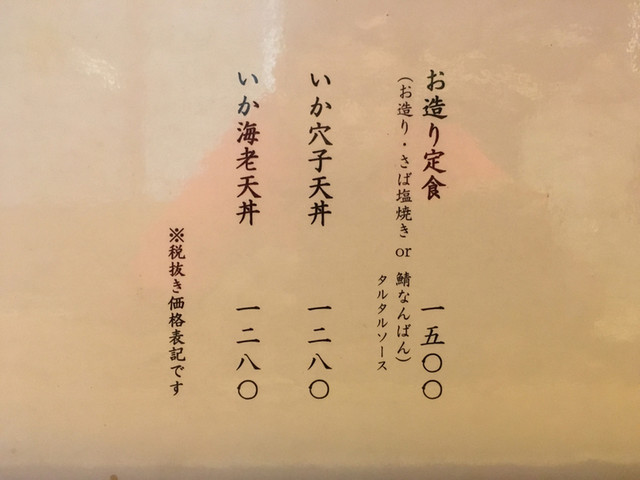 お造り定食 一五〇〇
(お造り・さば塩焼き or 鯖なんばん)
タルタルソース
いか穴子天丼 一二八〇
いか海老天丼 一二八〇
※税抜き価格表記です